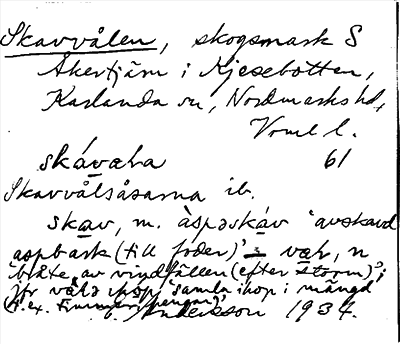 Skavvålen, skogsmark S
Åkertjärn i Kjesebotten,
Karlanda sn, Nordmarks hd,
Vrml l.
skávæla 61
Skavvålsåsarna ib.
skav, m. àspəskáv 'avskavd
aspbark (till foder)'
'bråte av vindfällen (efter storm)';
jfr våla ihop 'samla ihop i mängd
(t.ex. timmer, pengar)'
Andersson 1934.